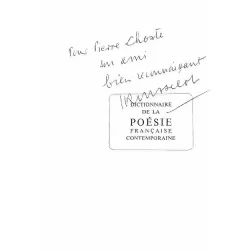 Pour Pierre Choate
son ami
bien reconnaissant
DICTIONNAIRE
DE LA
POÉSIE
FRANÇAISE
CONTEMPORAINE